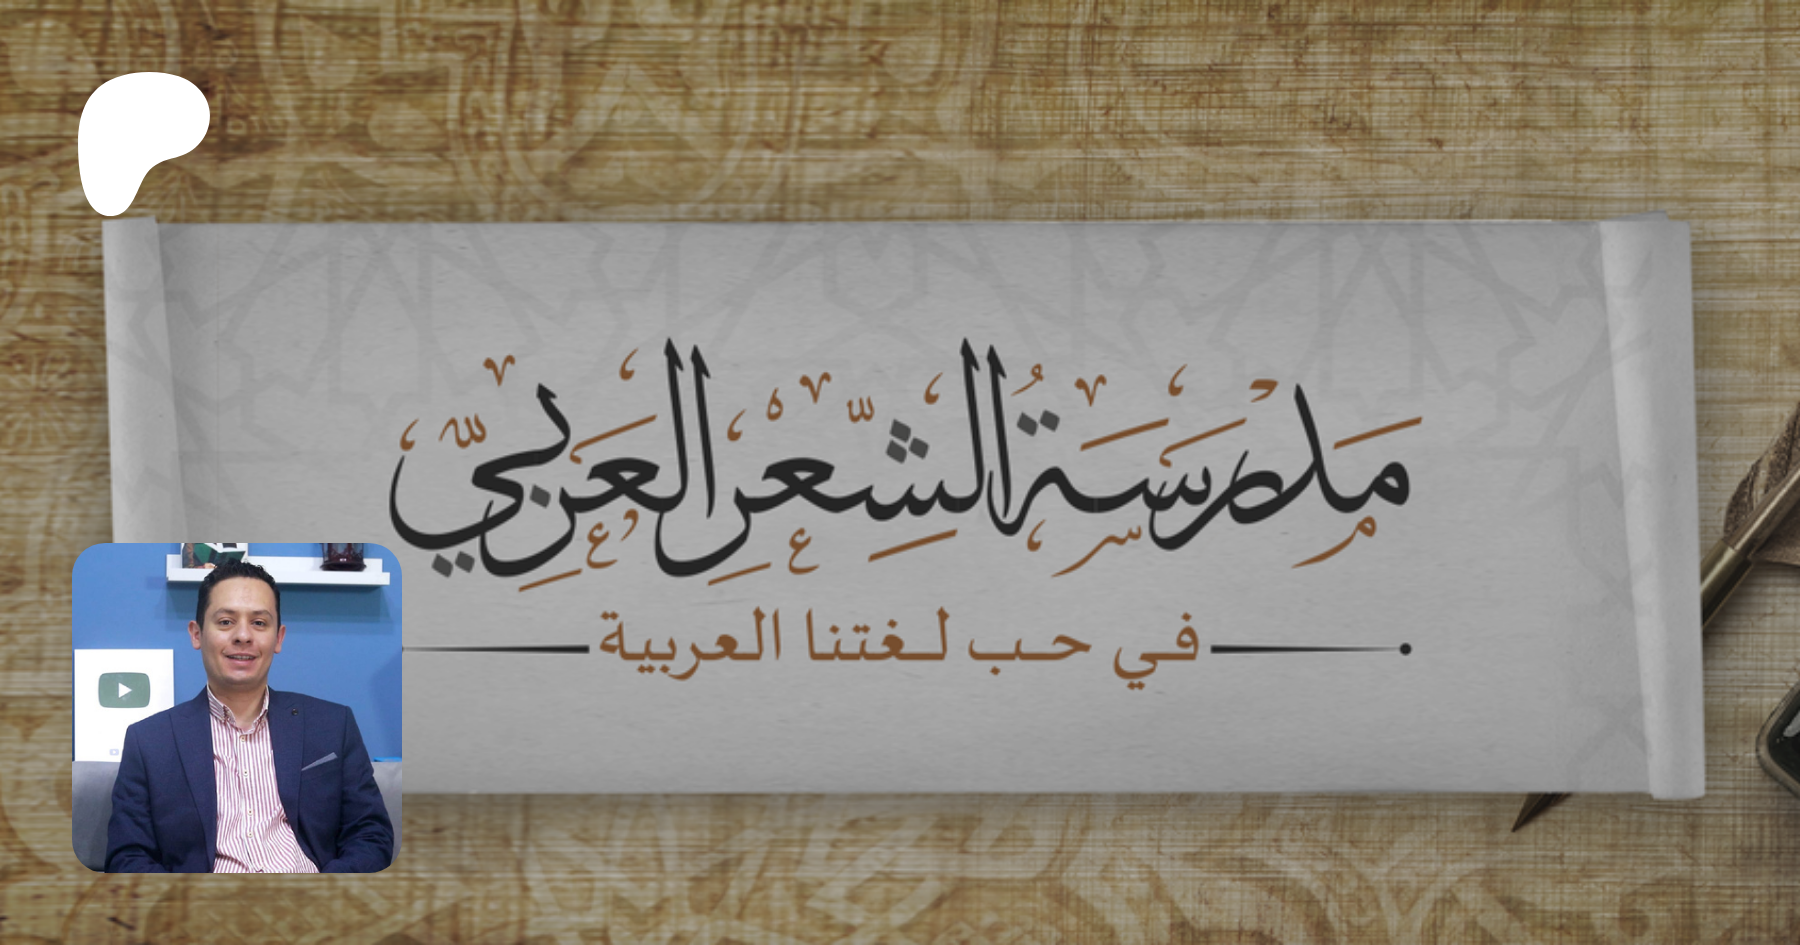 مَدْرَسَةُ الشِّعْرِ العَرَبِيِّ
في حب لغتنا العربية